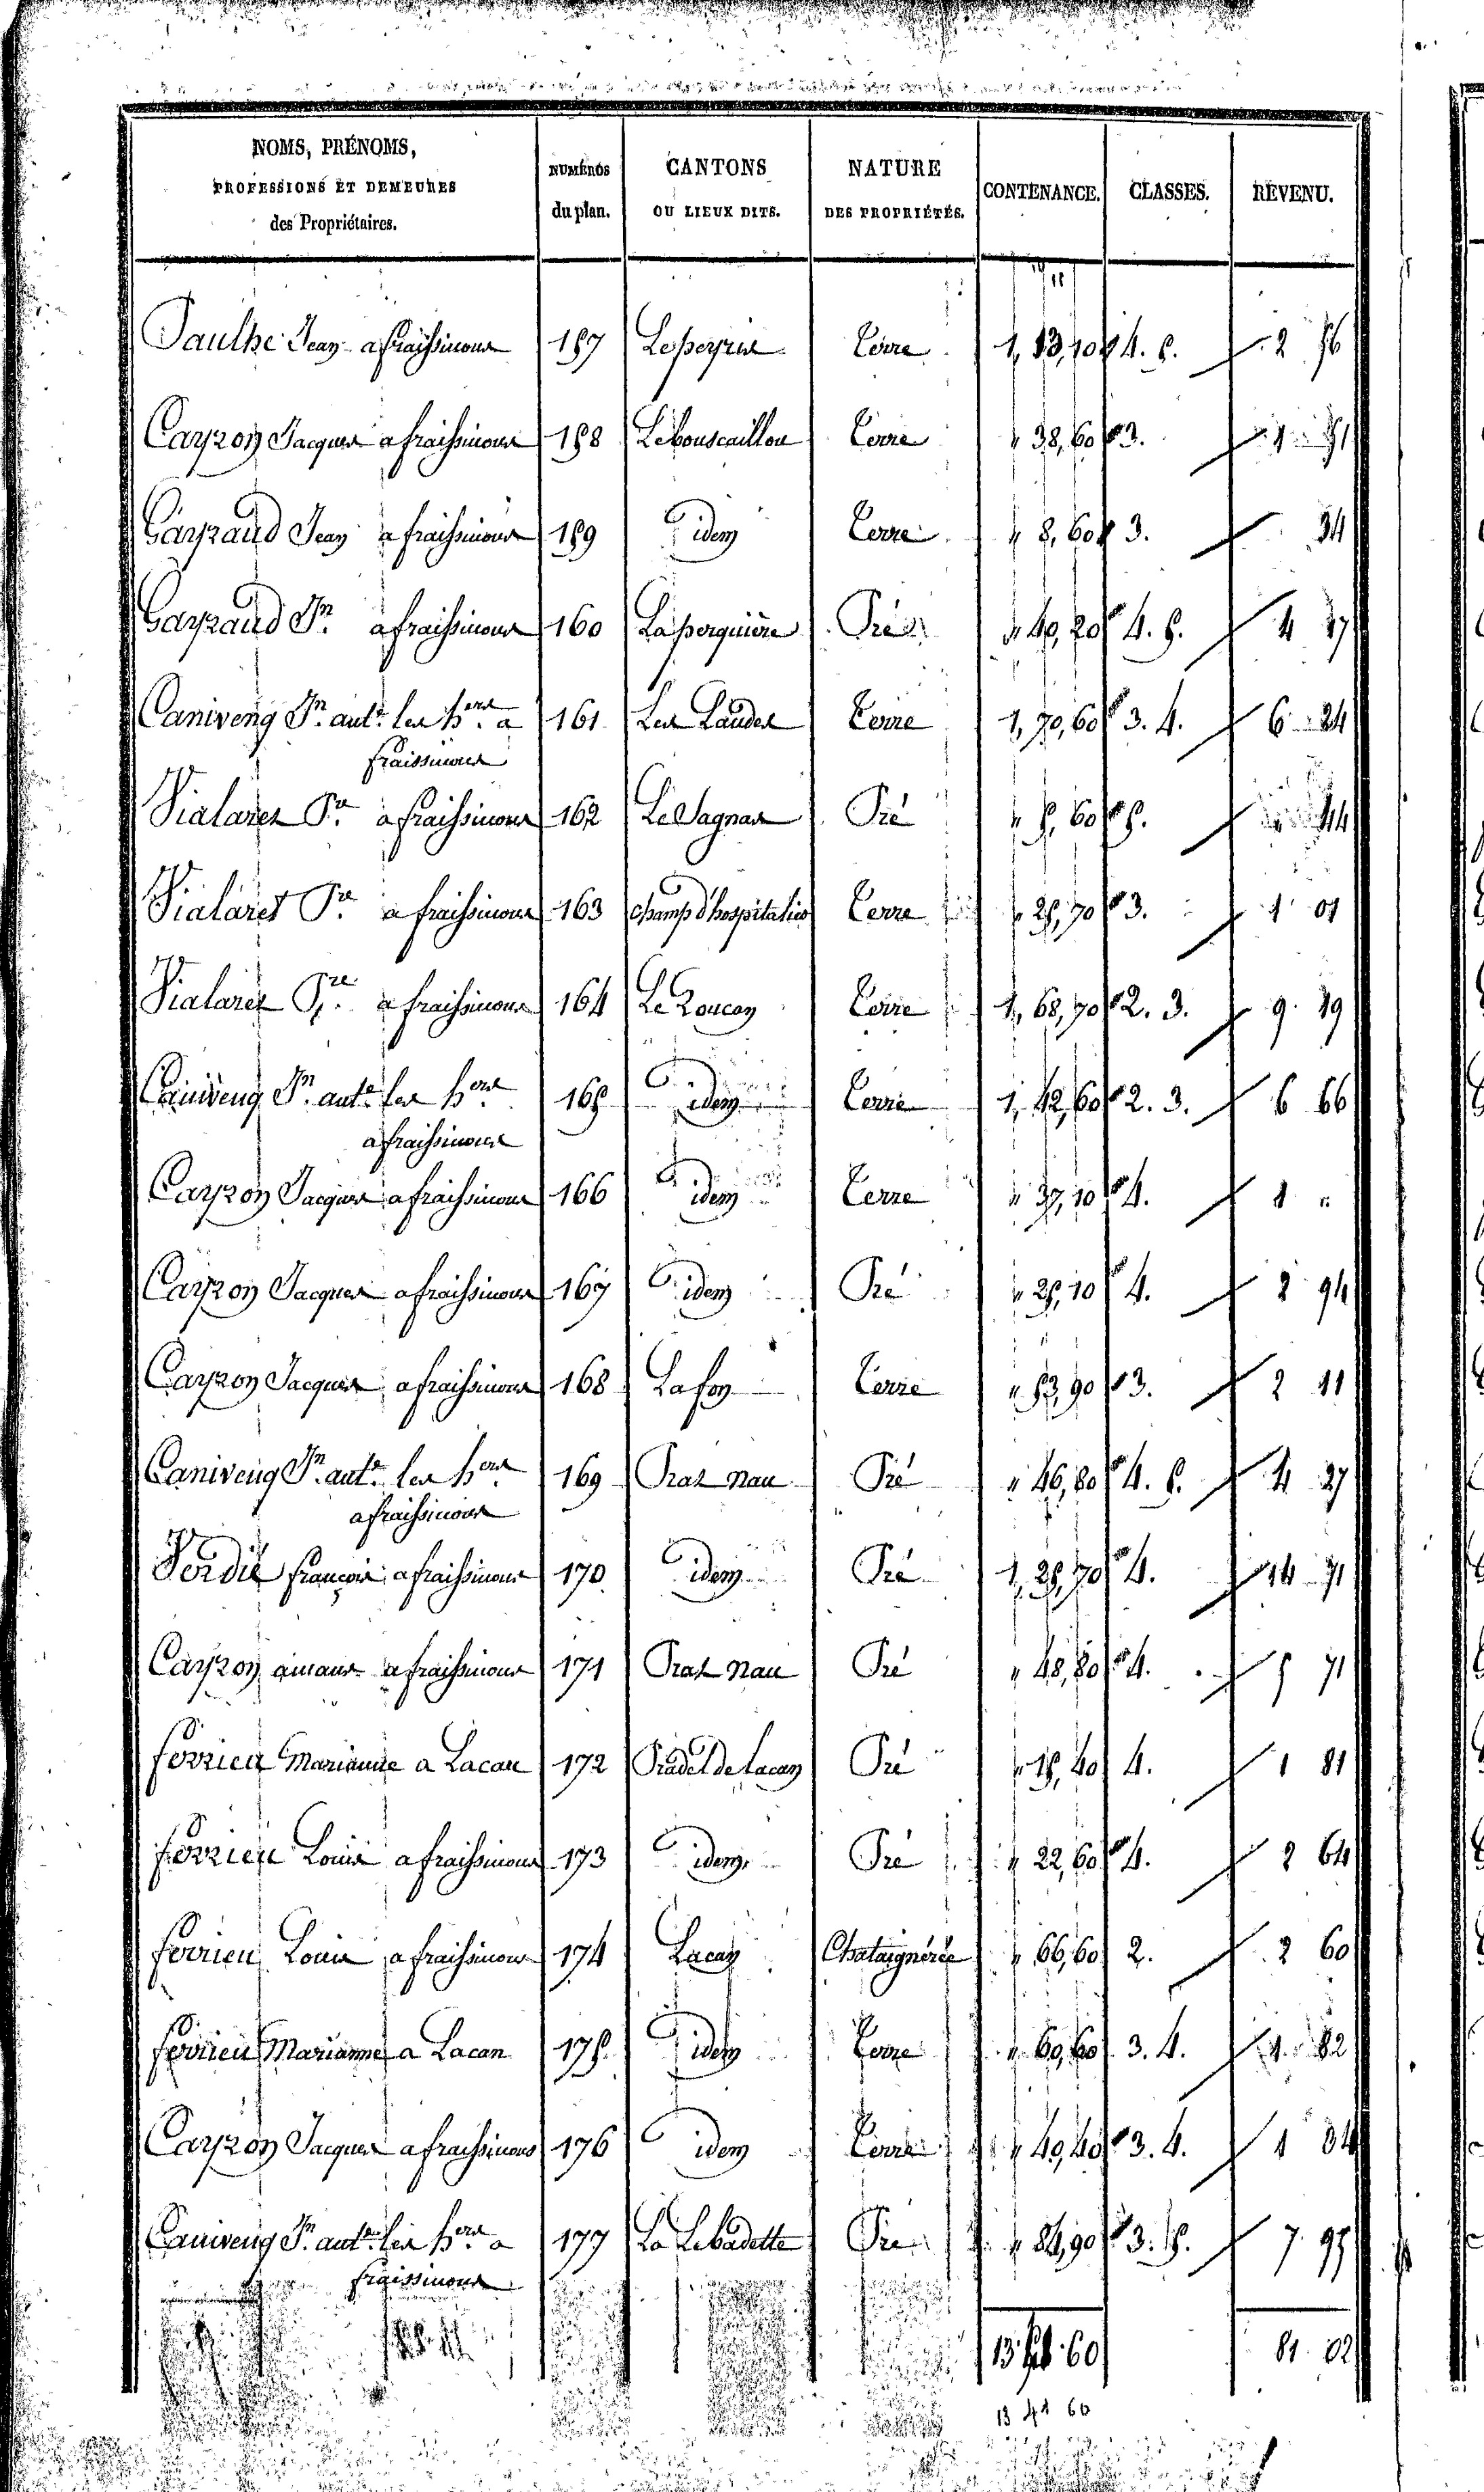 NOMS, PRÉNOMS, PROFESSIONS ET DEMEURES des Propriétaires. NUMÉROS du plan. CANTONS OU LIEUX DITS. NATURE DES PROPRIÉTÉS. CONTENANCE. CLASSES. REVENU.
Paulhe Jean a fraissinous 157 Lespeyrie Terre 1, 13, 10 4. 5. 2 56
Cayron Jacques a fraissinous 158 Lebouscaillou Terre " 38, 60 3. 1 51
Gayraud Jean a fraissinous 159 idem Terre " 8, 60 3. 34
Gayraud Jn a fraissinous 160 Laperguiere Pré " 40, 20 4. 5. 4 17
Caniveng Jn ante les hers a 161 Les Landes Terre 1, 70, 60 3. 4. 6 24
fraissinous
Vialaret Pre a fraissinous 162 Le Sagnas Pré " 5, 60 5. " 44
Vialaret Pre a fraissinous 163 champ d'hospitalies Terre " 25, 70 3. 1 01
Vialaret Pre a fraissinous 164 Le Roucan Terre 1, 68, 70 2. 3. 9 19
Caniveng Jn ante les hers 165 idem Terre 1, 42, 60 2. 3. 6 66
a fraissinous
Cayron Jacques a fraissinous 166 idem Terre " 37, 10 4. 1 "
Cayron Jacques a fraissinous 167 idem Pré " 25, 10 4. 2 94
Cayron Jacques a fraissinous 168 Lafon Terre " 53, 90 3. 2 11
Caniveng Jn ante les hers 169 Prat nau Pré " 46, 80 4. 5. 4 27
a fraissinous
Verdié françois a fraissinous 170 idem Pré 1, 25, 70 4. 14 71
Cayron amans a fraissinous 171 Prat nau Pré " 48, 80 4. 5 71
ferrieu Marianne a Lacan 172 Pradel de lacan Pré " 15, 40 4. 1 81
ferrieu Louis a fraissinous 173 idem Pré " 22, 60 4. 2 64
ferrieu Louis a fraissinous 174 Lacan Chataigneraie " 66, 60 2. 2 60
ferrieu Marianne a Lacan 175 idem Terre " 60, 60 3. 4. 1 82
Cayron Jacques a fraissinous 176 idem Terre " 40, 40 3. 4. 1 34
Caniveng Jn ante les hers a 177 La Lebadette Pré " 84, 90 3. 5. 7 95
fraissinous
13 60 81 02
13 41 60